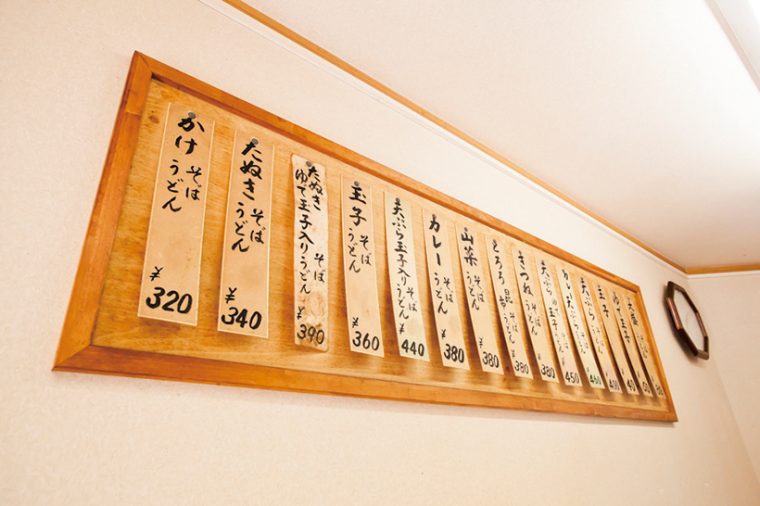 かけ そば うどん ¥320
たぬき そば うどん ¥340
たぬき ゆで玉子入り そば うどん ¥390
玉子 そば うどん ¥360
天ぷら玉子入り そば うどん ¥440
カレー そば うどん ¥380
山菜 そば うどん ¥380
とろろ昆布 そば うどん ¥380
きつね そば うどん ¥380
天ぷら 450
天ぷら 460
玉子
ゆで玉子